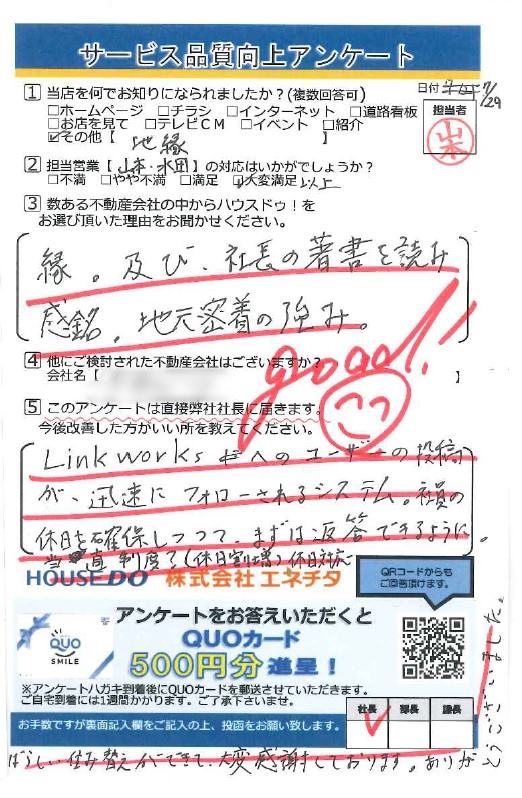 サービス品質向上アンケート
日付 7/29
1 当店を何でお知りになられましたか？(複数回答可)
□ホームページ □チラシ □インターネット □道路看板
□お店を見て □テレビCM □イベント □紹介
☑その他【 地縁 】
担当者
山本
2 担当営業【山本・水田】の対応はいかがでしょうか？
□不満 □やや不満 □満足 ☑大変満足 以上
3 数ある不動産会社の中からハウスドゥ！を
お選び頂いた理由をお聞かせください。
縁。及び、社長の著書を読み
感銘。地元密着の強み。
good!!
4 他にご検討された不動産会社はございますか？
会社名【 】
5 このアンケートは直接弊社社長に届きます。
今後改善した方がいい所を教えてください。
Linkworksへのユーザーの投稿
が、迅速にフォローされるシステム。社員の
休日を確保しつつ、まずは返答できるように。
当直制度？(休日割増)休日対応
HOUSE DO 株式会社 エネチタ
QRコードからも
ご回答頂けます。
QUO
SMILE
アンケートをお答えいただくと
QUOカード
500円分 進呈！
※アンケートハガキ到着後にQUOカードを郵送させていただきます。
ご自宅到着には1週間かかります。ご了承下さいませ。
お手数ですが裏面記入欄をご記入の上、投函をお願い致します。
社長 部長 課長
ばらしい住み替えができて、大変感謝しております。ありがとうございました。